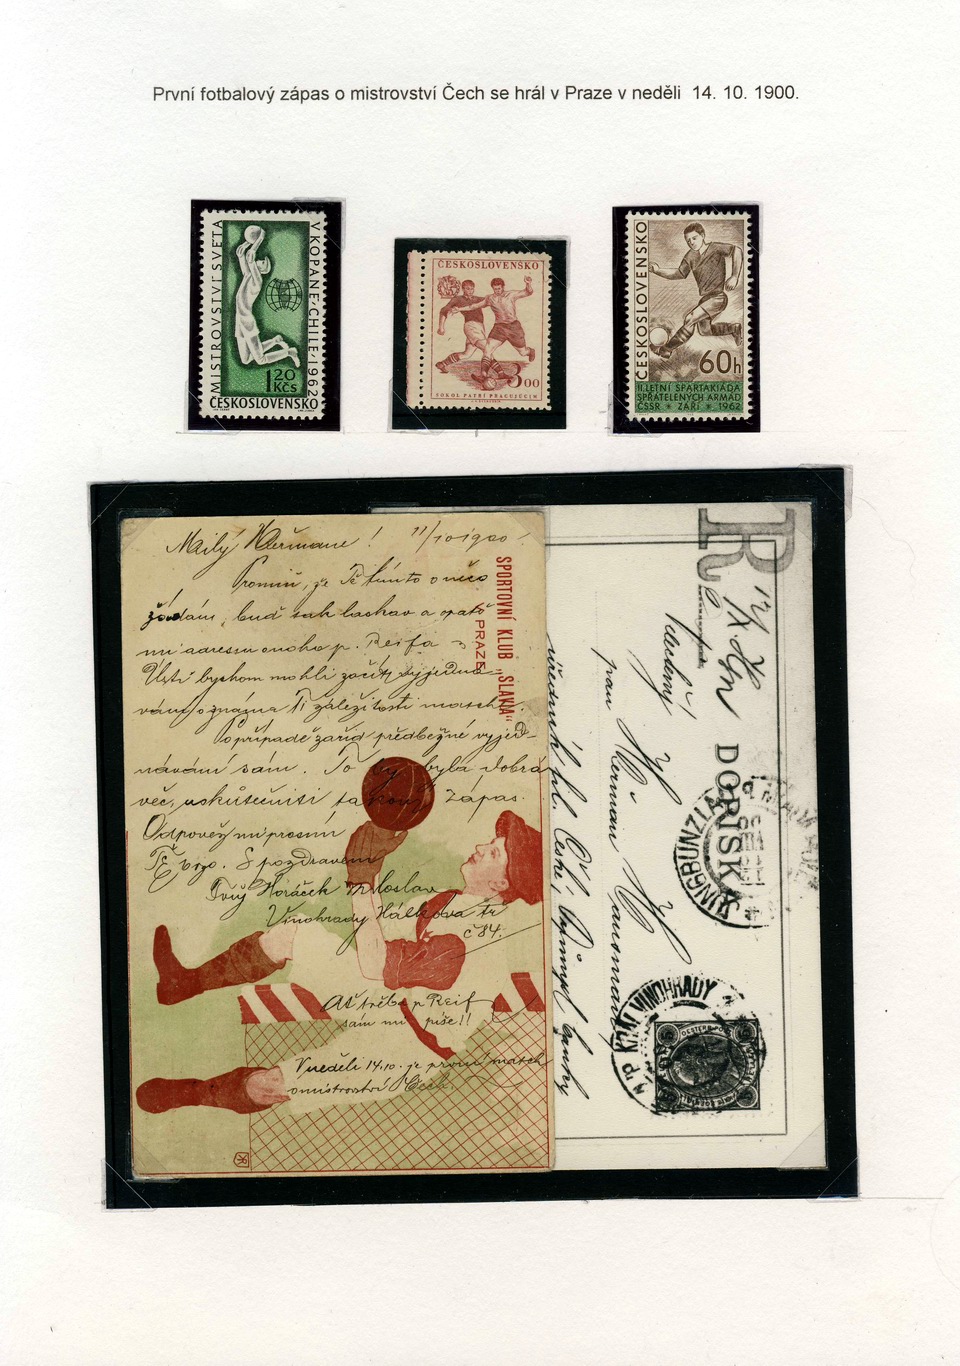 První fotbalový zápas o mistrovství Čech se hrál v Praze v neděli 14. 10. 1900.
MISTROVSTVÍ SVETA
V KOPANÉ/CHILE/1962
1 20
KČS
ČESKOSLOVENSKO
ČESKOSLOVENSKO
3 00
SOKOL PATŘÍ PRACUJÍCÍM
ČESKOSLOVENSKO
60h
II. LETNÍ SPARTAKIÁDA
SPŘÁTELENÝCH ARMÁD
ČSSR ★ ZÁŘÍ ★ 1962
Milý Heřmane! 11/10 1900
Promiň, že Tě tímto o něco
žádám, buď tak laskav a opatř
mi adresu onoho p. Reifa z
Ústí bychom mohli začíti vyjedná-
vání o známé Ti záležitosti matche.
Popřípadě zařiď předběžné vyjed-
návání sám. To by byla dobrá
věc, uskutečniti takový zápas.
Odpověz mi prosím
Tě brzo. S pozdravem
Tvůj Horáček Miloslav
Vinohrady Hálkova tř
č 84.
Ať třeba p Reif
sám mi píše!!
V neděli 14/10. je první match
o mistrovství Čech.
SPORTOVNÍ KLUB „SLAVIA"
V PRAZE
R
DOPISKA
JUNGBUNZLAU
KRÁL. VINOHRADY
pan
Herman
úředník fil. České
banky